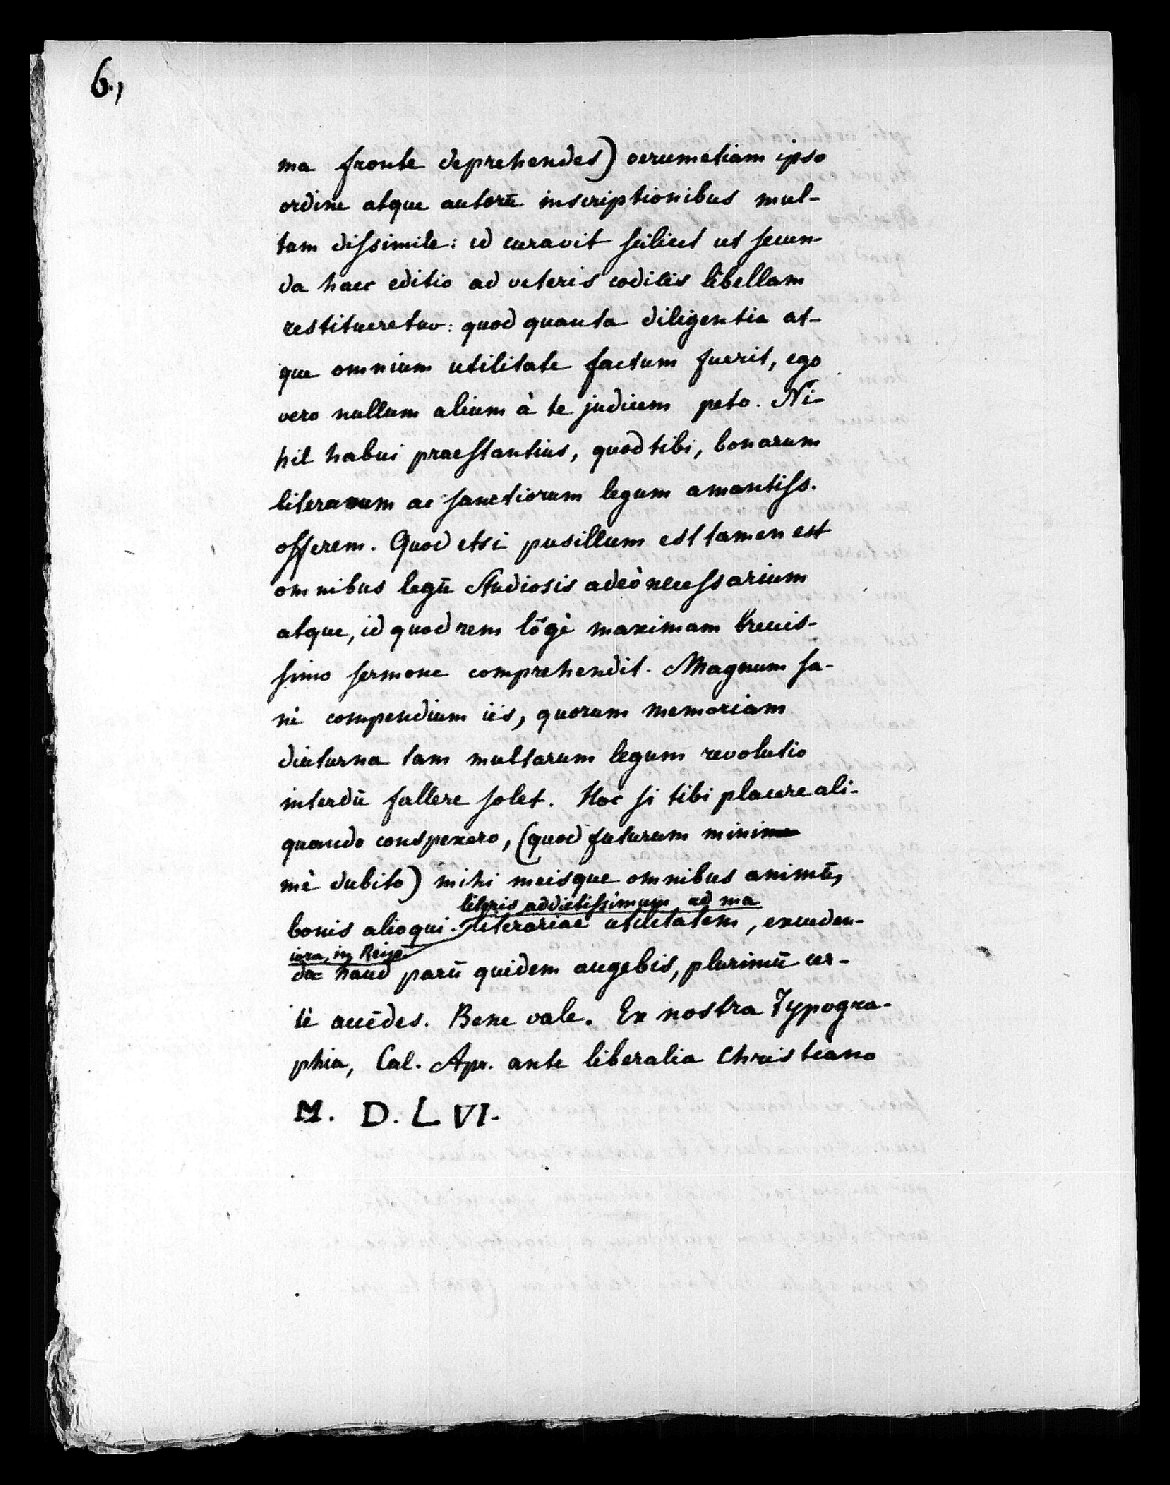 6.,
ma fronte deprehendes) verumetiam ipso
ordine atque autorū inscriptionibus mul-
tam dissimile: id curavit scilicet ut secun-
da haec editio ad veteris codicis libellam
restitueretur: quod quanta diligentia at-
que omnium utilitate factum fuerit, ego
vero nullum alium à te judicem peto. Ni-
hil habui praestantius, quod tibi, bonarum
literarum ac sanctiorum legum amantiss.
offerem. Quod etsi pusillum est tamen est
omnibus legū Studiosis adeò necessarium
atque, id quod rem lōgè maximam breuis-
simo sermone comprehendit. Magnum sa-
nè compendium iis, quorum memoriam
diuturna tam multarum legum revolutio
interdū fallere solet. Hoc si tibi placere ali-
quando conspexero, (quod futurum minime
mè dubito) mihi meisque omnibus animū,
libris addictissimum, ad ma
bonis alioqui literariae utilitatem, excuden-
iora, in Reip.
da haud parū quidem augebis, plurimū cer-
tè accēdes. Bene vale. Ex nostra Typogra-
phia, Cal. Apr. ante liberalia Christiano
M. D. L VI.